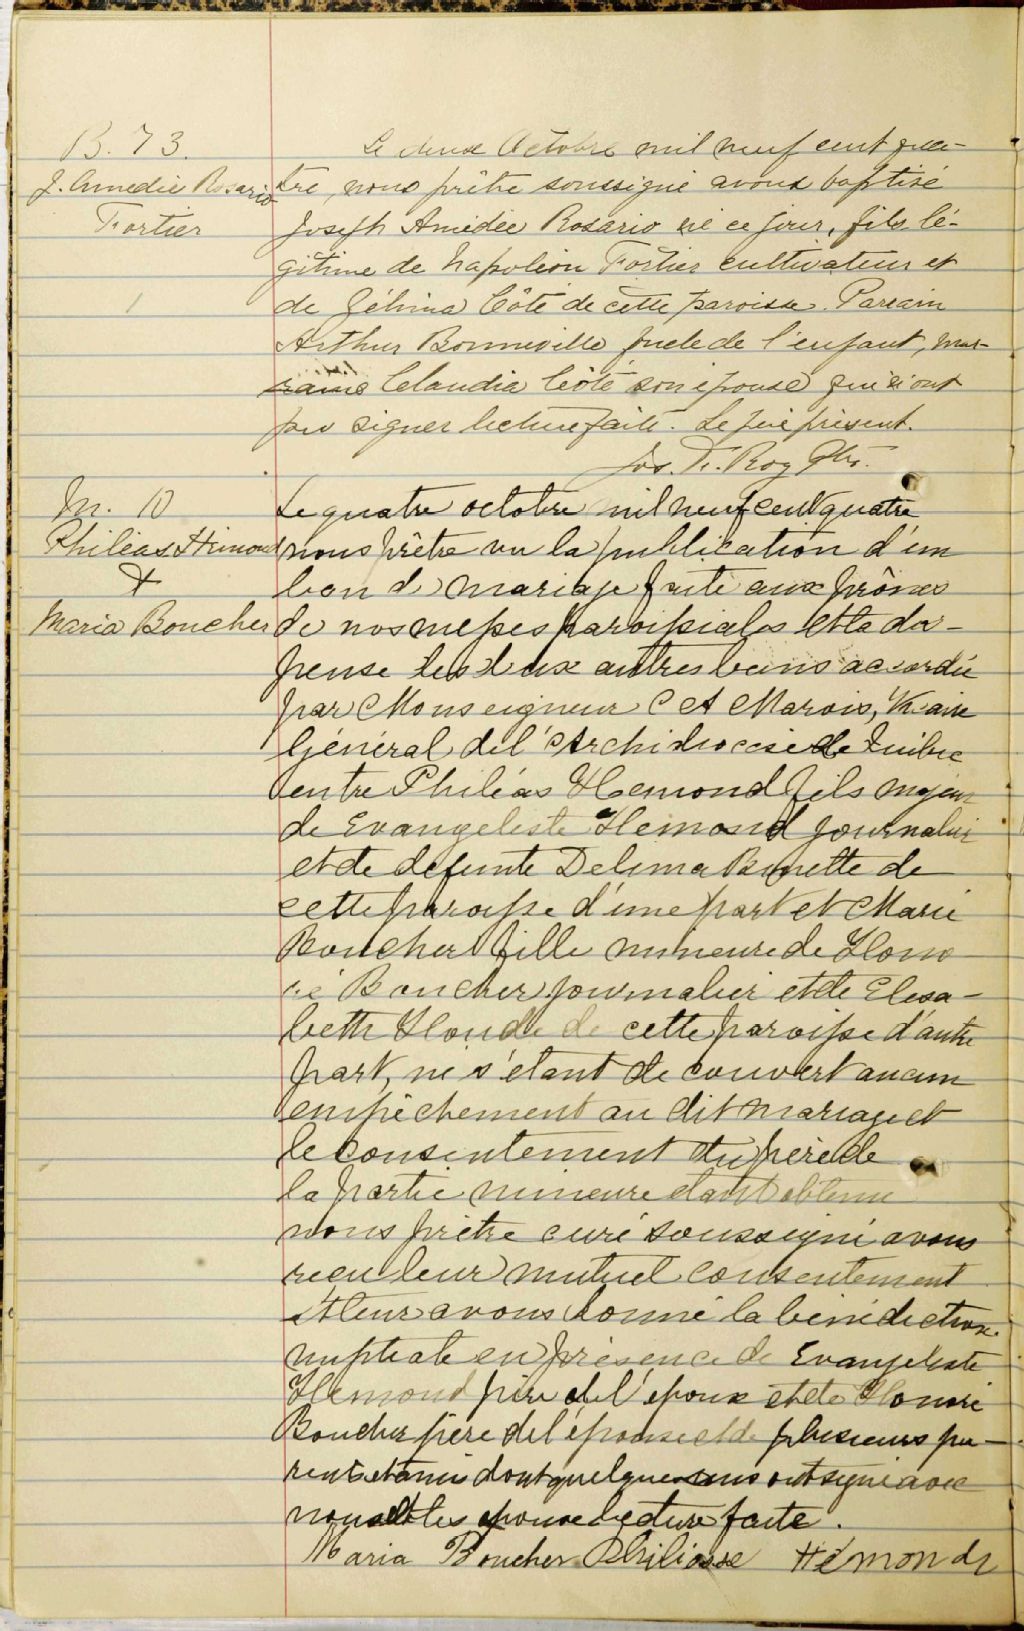 B. 73.
J. Amédée Rosario
Fortier
Le deux Octobre mil neuf cent qua-
tre, nous prêtre soussigné avons baptisé
Joseph Amédée Rosario né ce jour, fils lé-
gitime de Napoléon Fortier cultivateur et
de Célina Côté de cette paroisse. Parrain
Arthur Bonneville oncle de l'enfant, mar-
raine Claudia Côté son épouse qui n'ont
pu signer lecture faite. Le père présent.
Jos. Roy Ptr.
M. 10
Philéas Hémond
&
Maria Boucher
Le quatre octobre mil neuf cent quatre
nous prêtre vu la publication d'un
ban de mariage faite aux prônes
de nos messes paroissiales et la dis-
pense des deux autres bans accordée
par Monseigneur C A Marois, Vicaire
Général de l'Archidiocèse de Québec
entre Philéas Hemond fils majeur
de Evangeliste Hemond journalier
et de defunte Delima Binette de
cette paroisse d'une part et Marie
Boucher fille mineure de Hono
ré Boucher journalier et de Elisa-
beth Houde de cette paroisse d'autre
part, ne s'étant découvert aucun
empêchement au dit mariage et
le consentement du père de
la partie mineure étant obtenu
nous prêtre curé soussigné avons
reçu leur mutuel consentement
et leur avons donné la bénédiction
nuptiale en présence de Evangeliste
Hemond père de l'époux et de Honoré
Boucher père de l'épouse et de plusieurs pa-
rents et amis dont quelques uns ont signé avec
nous et les epoux lecture faite.
Maria Boucher Philiasse Hémond